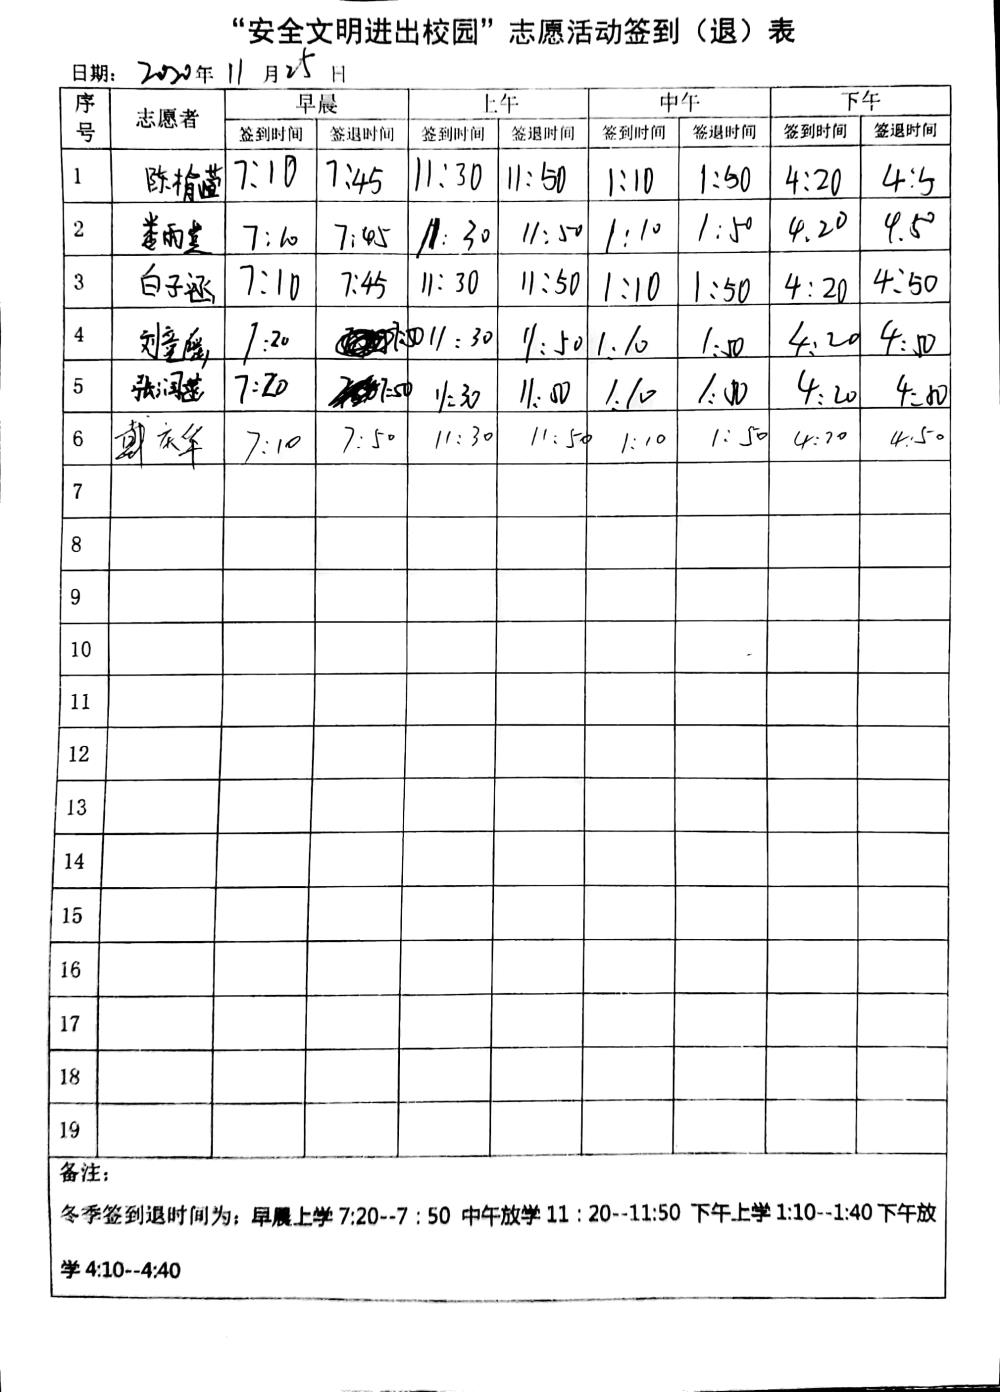 “安全文明进出校园”志愿活动签到（退）表
日期：2020年11月25日
序号 志愿者 早晨 上午 中午 下午
签到时间 签退时间 签到时间 签退时间 签到时间 签退时间 签到时间 签退时间
1 陈榆萱 7:10 7:45 11:30 11:50 1:10 1:50 4:20 4:5
2 7:10 7:45 11:30 11:50 1:10 1:50 4.20 4.50
3 白子涵 7:10 7:45 11:30 11:50 1:10 1:50 4:20 4:50
4 刘童 7:20 7:50 11:30 11:50 1:10 1:50 4:20 4:50
5 张润莲 7:20 7:50 11:30 11:50 1:10 1:50 4:20 4:50
6 戴庆华 7:10 7:50 11:30 11:50 1:10 1:50 4:20 4:50
7
8
9
10
11
12
13
14
15
16
17
18
19
备注：
冬季签到退时间为：早晨上学7:20--7：50 中午放学11：20--11:50 下午上学1:10--1:40下午放
学4:10--4:40